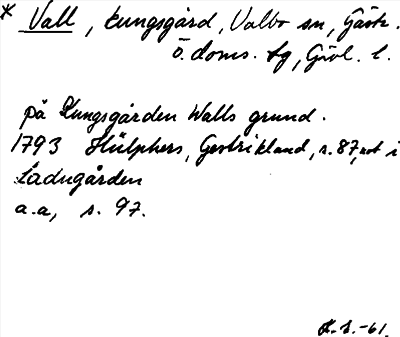 * Vall, kungsgård, Valbo sn, Gästr.
Ö. doms. tg, Gävl. l.
på Kungsgården Walls grund.
1793 Hülphers, Gestrikland, s. 87, not i
Ladugården
a.a, s. 97.
-61.